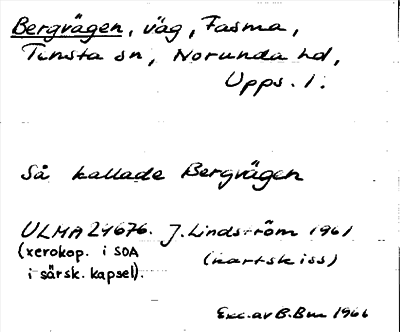 Bergvägen, väg, Fasma,
Tensta sn, Norunda hd,
Upps. l.
Så kallade Bergvägen
ULMA 24676. J. Lindström 1961
(xerokop. i SOA (kartskiss)
i särsk. kapsel).
Exc. av B. Bm 1966